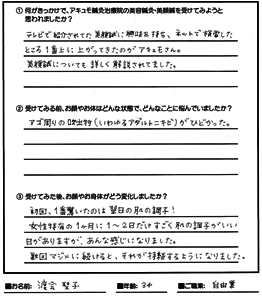 ① 何がきっかけで、アキュモ鍼灸治療院の美容鍼灸・美顔鍼を受けてみようと
思われましたか?
テレビで紹介されてた美顔鍼に興味を持ち、ネットで検索した
ところ1番上に上がってきたのがアキュモさん。
美顔鍼についても詳しく解説されてました。
② 受けてみる前、お顔やお体はどんな状態で、どんなことに悩んでいましたか?
アゴ周りの吹出物(いわゆるアダルトニキビ)がひどかった。
③ 受けてみた後、お顔やお身体がどう変化しましたか?
初回、1番驚いたのは翌日の肌の調子!
女性特有の1ヶ月に1〜2日だけすごく肌の調子がいい
日がありますが、あんな感じになりました。
数回マジメに続けると、それが持続するようになりました。
■お名前: 渡会 聖子 ■年齢: 34 ■ご職業: 自由業